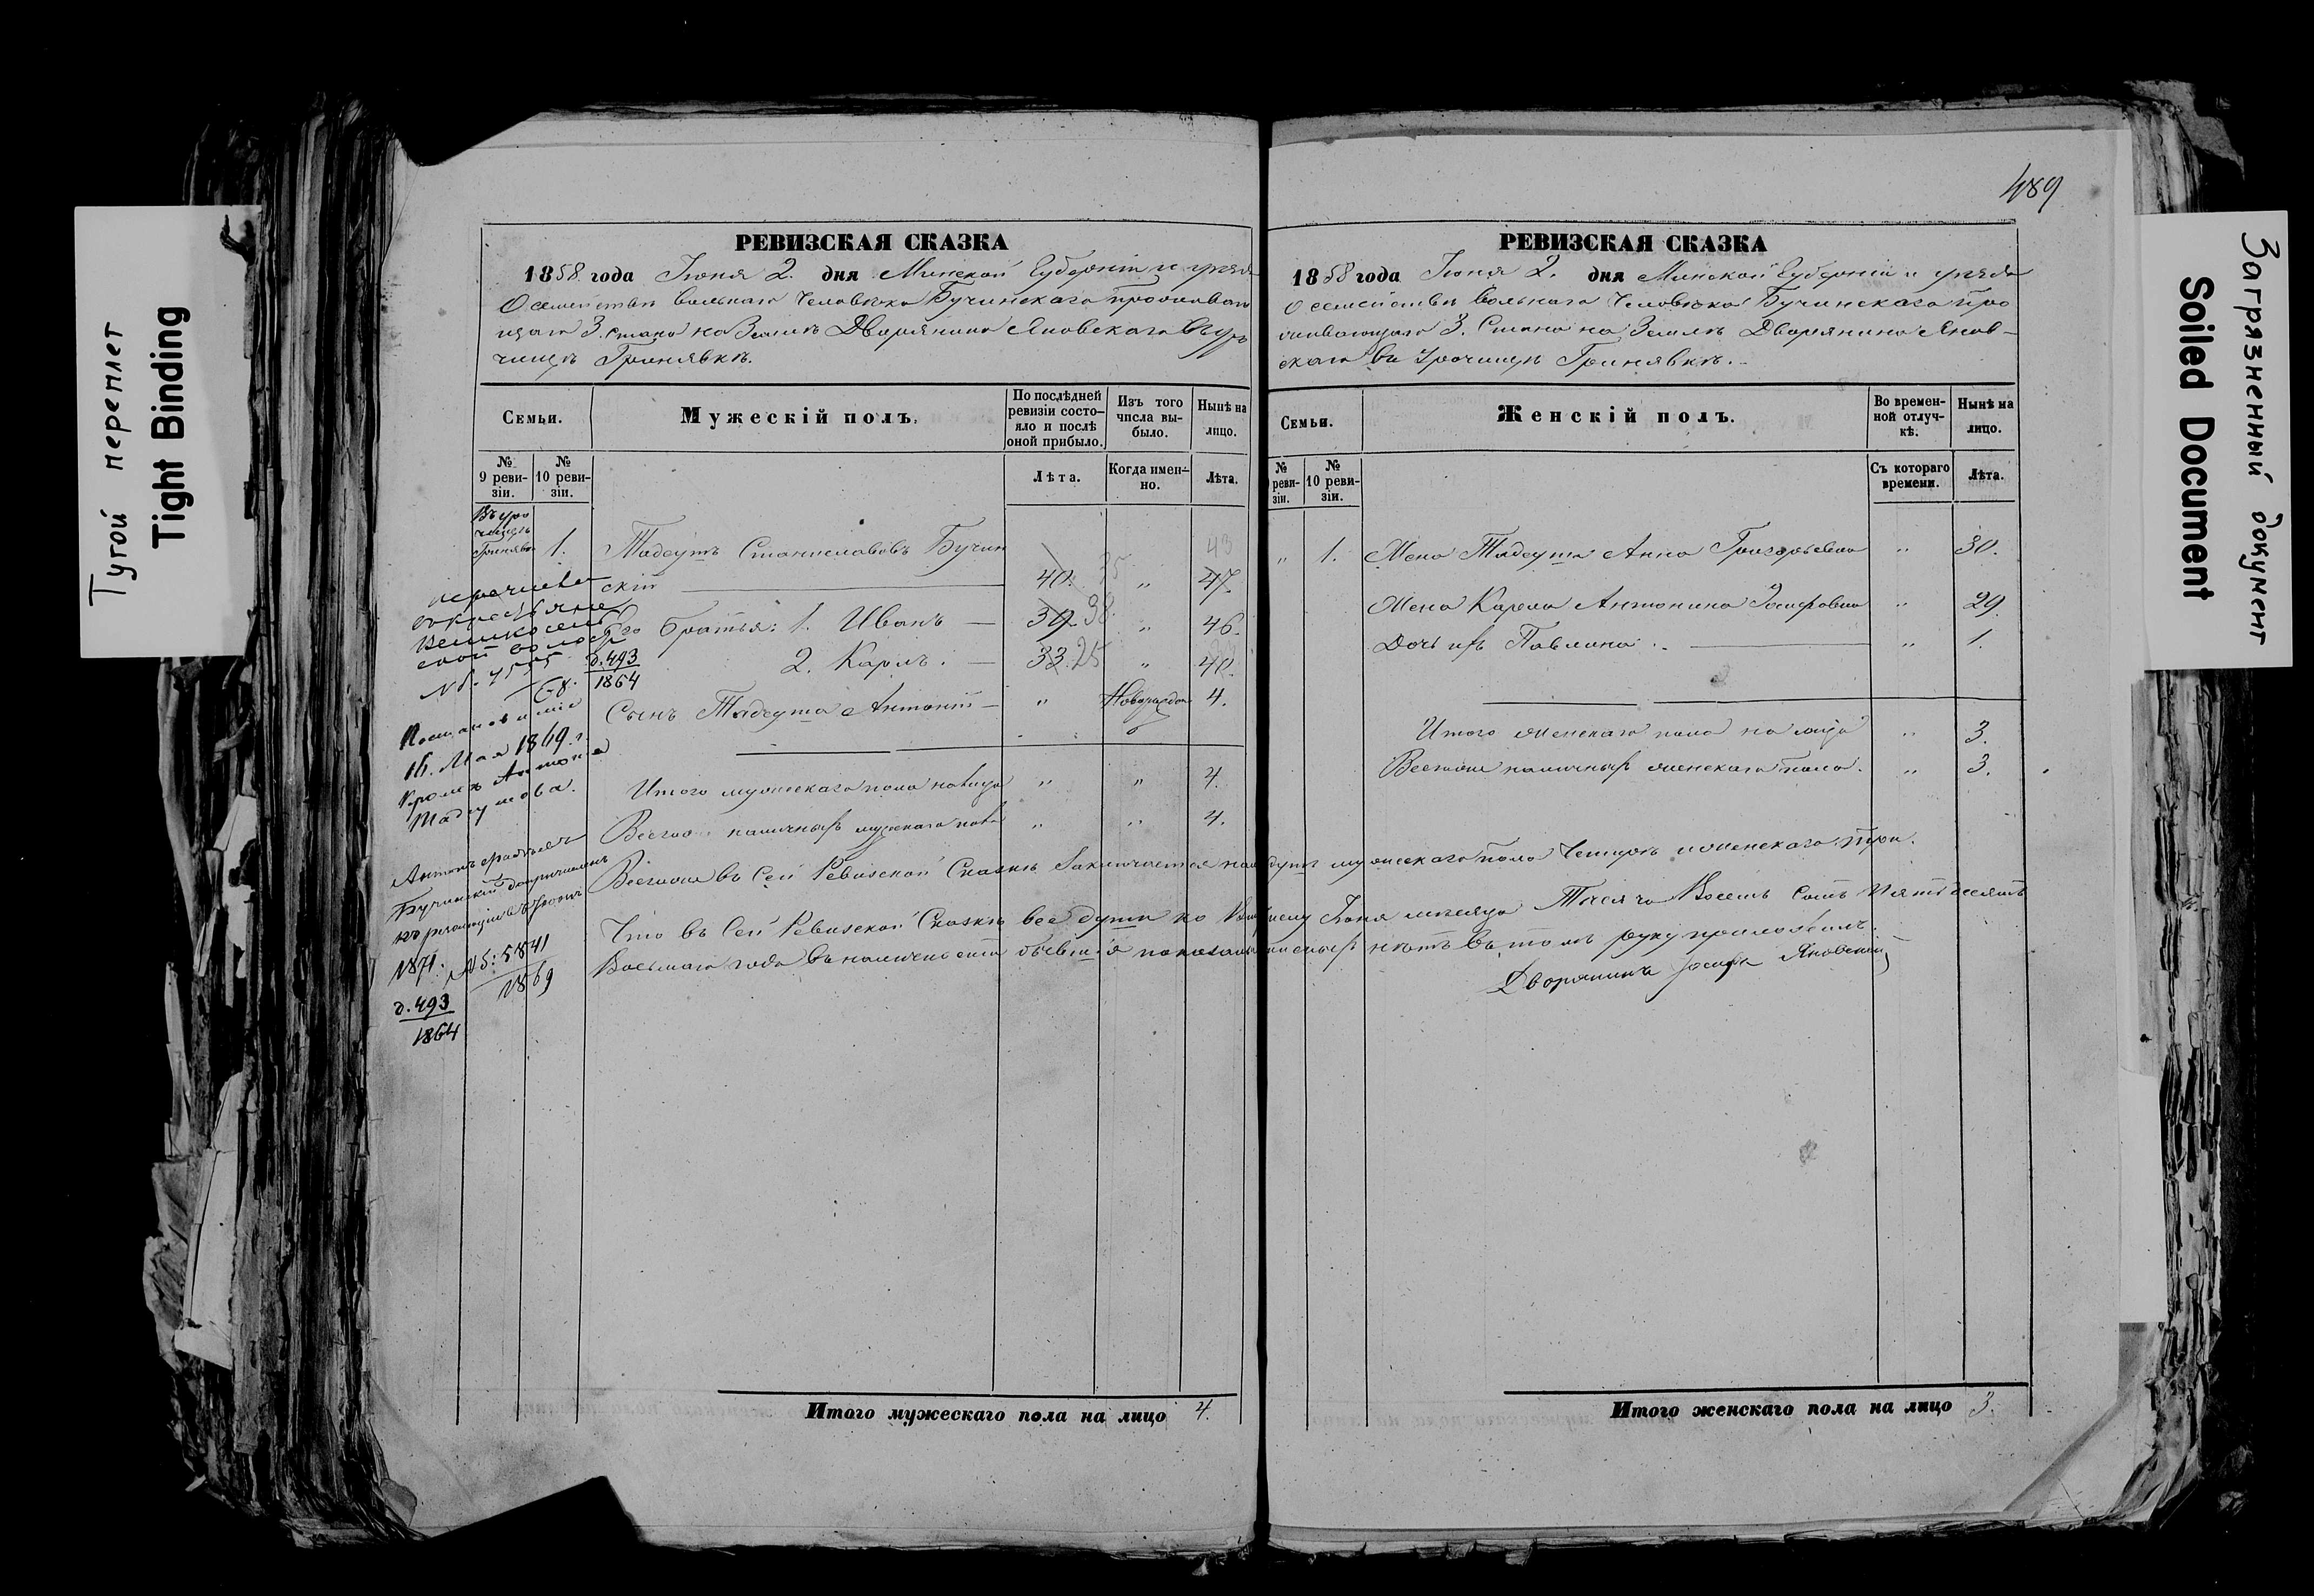 Тугой переплет
Tight Binding
РЕВИЗСКАЯ СКАЗКА
1858 года Іюня 2. дня Минской Губерніи и уезда
О семействѣ вольнаго Человѣка Бучинскаго проживаю
щаго 3. Стана на Землѣ Дворянина Яновскаго в Уро
чищѣ Гринявкѣ.
Семьи.
Мужескій полъ.
По послѣдней ревизіи состо-
яло и послѣ оной прибыло.
Изъ того числа вы-
было.
Нынѣ на лицо.
№ 9 реви-
зіи.
№ 10 реви-
зіи.
Лѣта.
Когда имен-
но.
Лѣта.
Въ уро
чищѣ
Гринявкѣ
1.
Тадеушъ Станиславовъ Бучин
43
скій
40. 35 " 47.
Его братья: 1. Иванъ — 39. 38. " 46.
2. Карлъ. — 33. 25 " 40.
Сынъ Тадеуша Антоній — " Новорожден 4.
Итого мужескаго пола на лицо " " 4.
Всего наличныхъ мужескаго пола " " 4.
перечислен
в крестьяне
д. 493
1864
№ 7595
Постановленіе
16. Мая 1869. г.
кромѣ Антона
Тадеушова.
Бучинскій
1871.
№ 5841
1869
д. 493
1864
489
РЕВИЗСКАЯ СКАЗКА
1858 года Іюня 2. дня Минской Губерніи и уезда
О семействѣ вольнаго Человѣка Бучинскаго про
живающаго 3. Стана на Землѣ Дворянина Янов-
скаго въ Урочищѣ Гринявкѣ.
Семьи.
Женскій полъ.
Во времен-
ной отлуч-
кѣ.
Нынѣ на лицо.
№
реви-
зіи.
№ 10 реви-
зіи.
Съ котораго времени.
Лѣта.
" 1. Жена Тадеуша Анна Григорьевна " 30.
Жена Карла Антонина Іосифовна " 29.
Дочь ихъ Павлина. " 1.
Итого женскаго пола на лицо " 3.
Всего наличныхъ женскаго пола. " 3.
Всего въ Сей Ревизской Сказкѣ Заключается душъ мужескаго пола Четыре и женскаго три.
Что въ Сей Ревизской Сказкѣ все души по Іюня мѣсяца Тысяча Восемь Сотъ Пятьдесятъ
Восьмаго года въ наличности бывшія показаны нѣтъ въ томъ руку приложилъ.
Дворянинъ Іосифъ Яновскій
Итого мужескаго пола на лицо 4.
Итого женскаго пола на лицо 3.
Загрязненный документ
Soiled Document